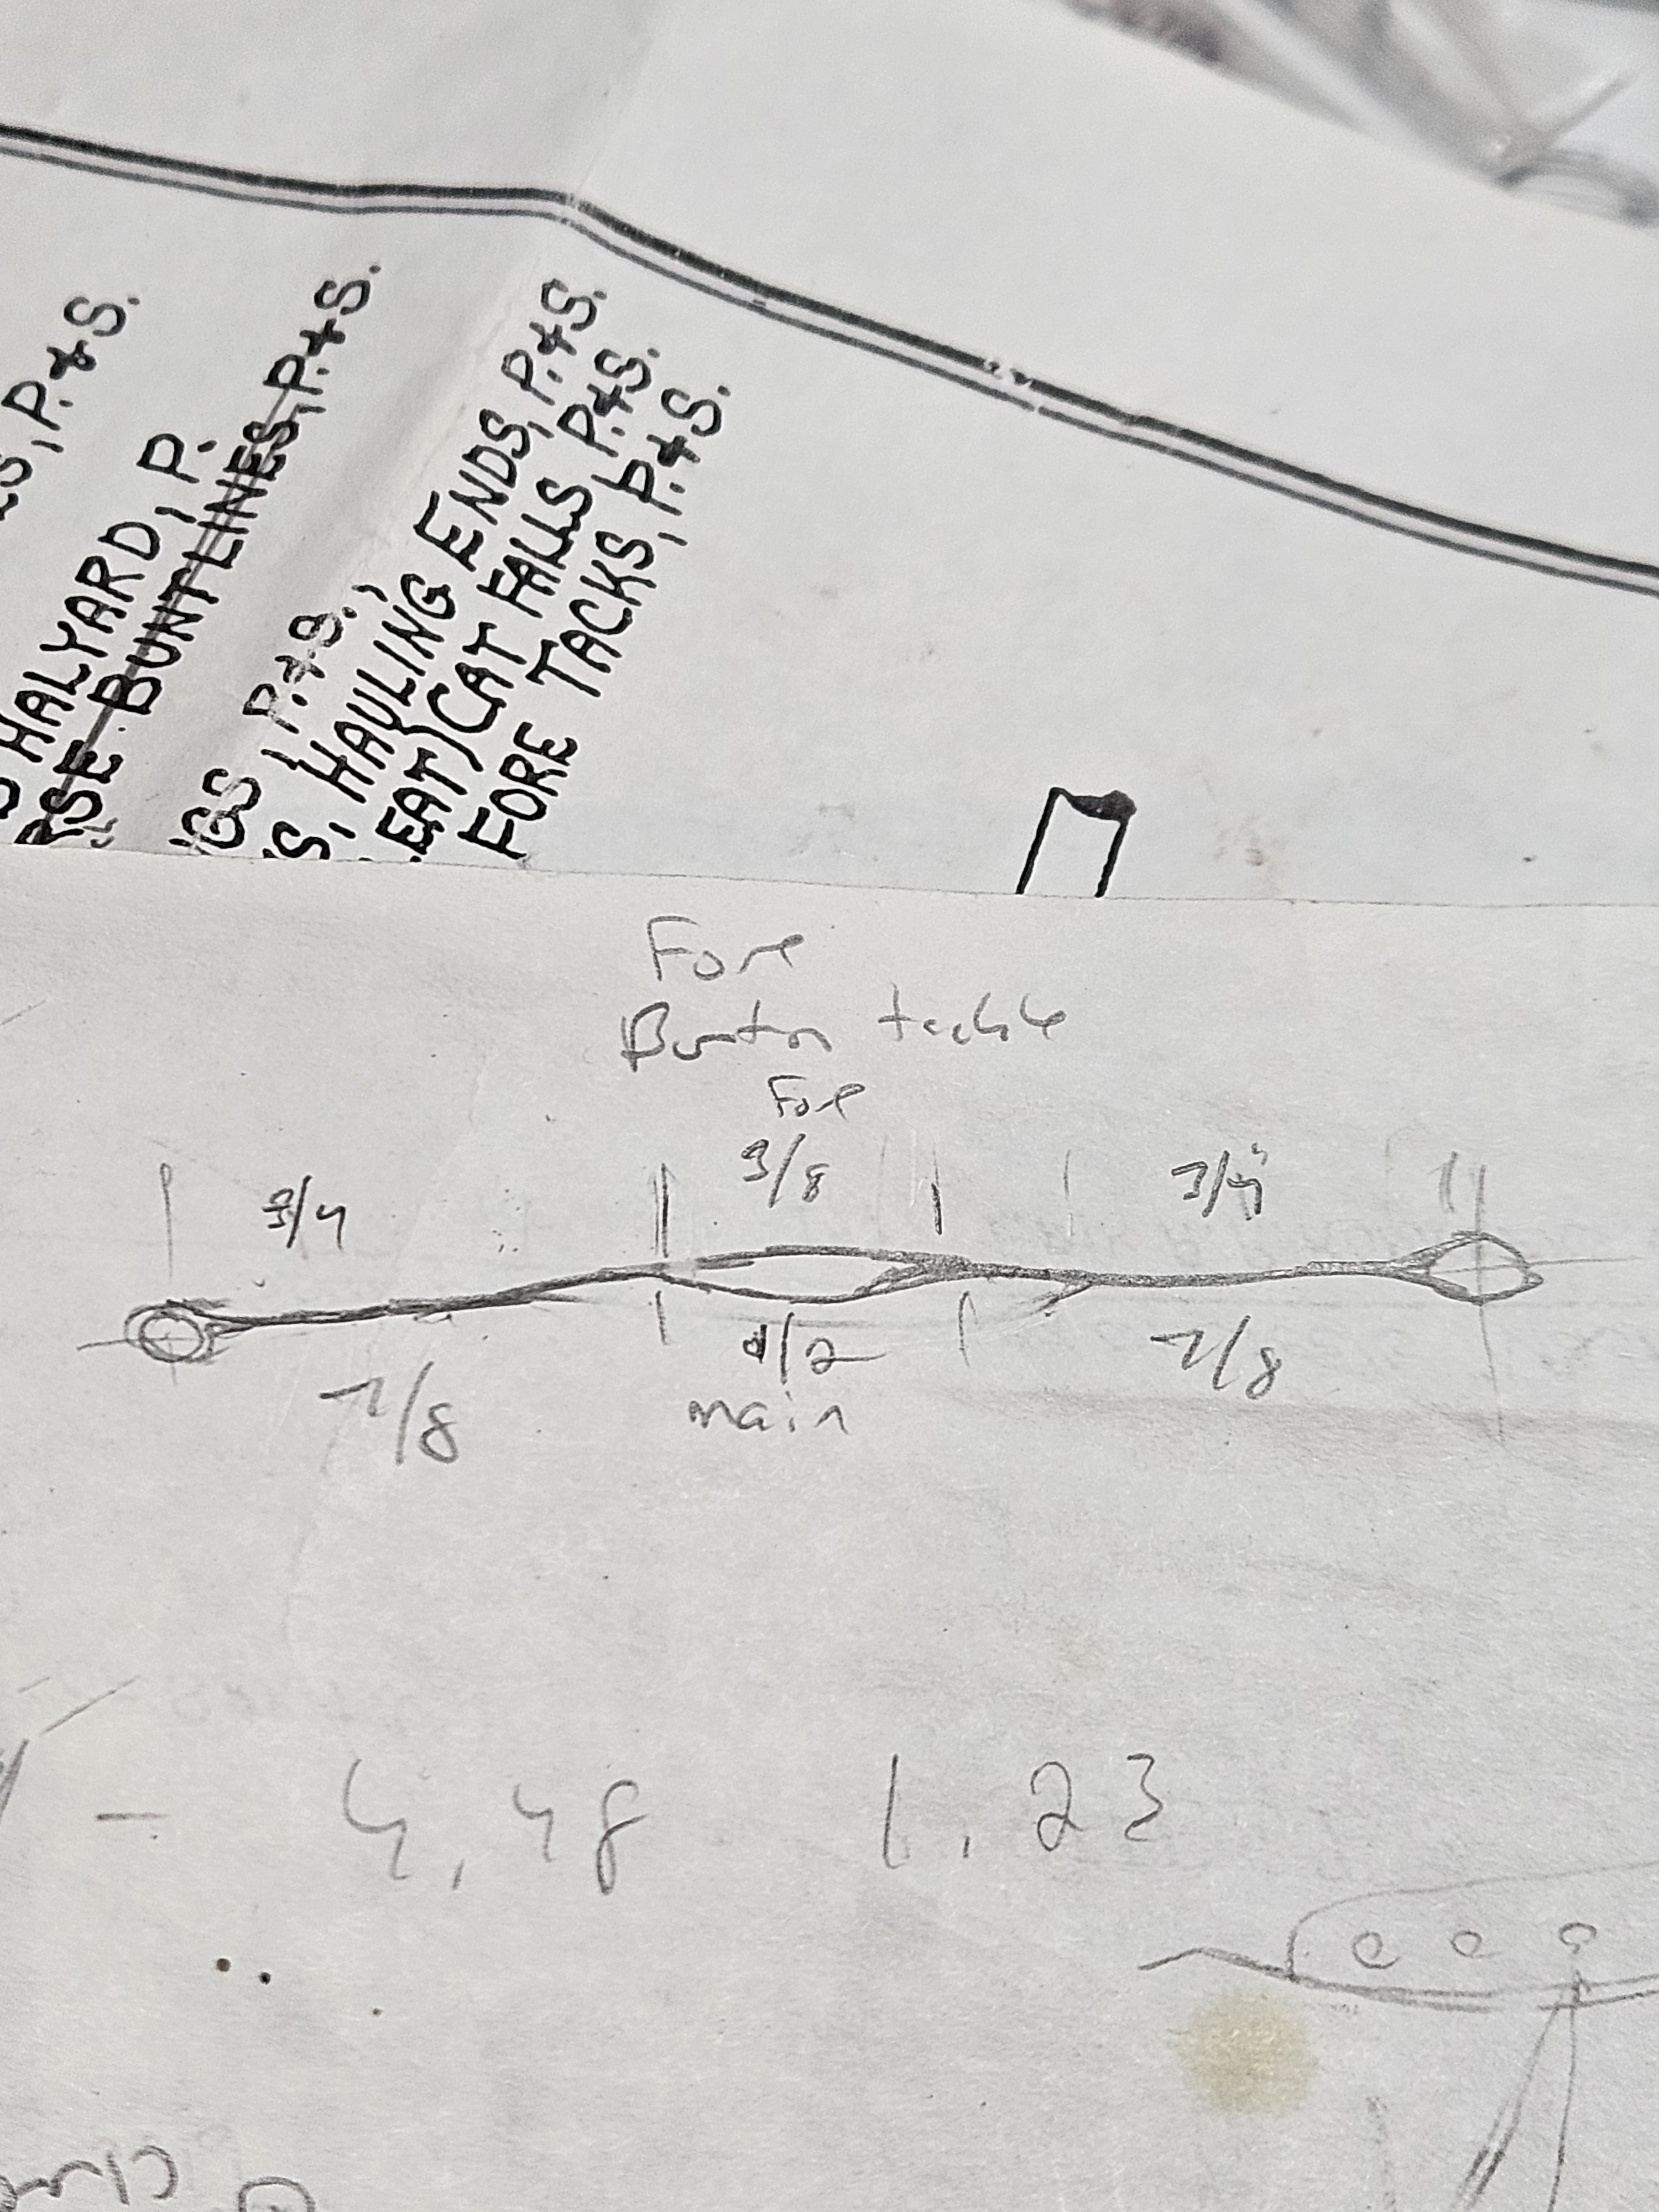 S, P.&S.
HALYARD, P.
RSE BUNTLINES, P.&S.
GS, P.&S.,
S, HAULING ENDS, P.&S.
EAT) CAT FALLS, P.&S.
FORE TACKS, P.&S.
Fore
Burton tackle
Fore
3/4 3/8 3/4"
7/8 1/2 7/8
main
- 4.48 1.23